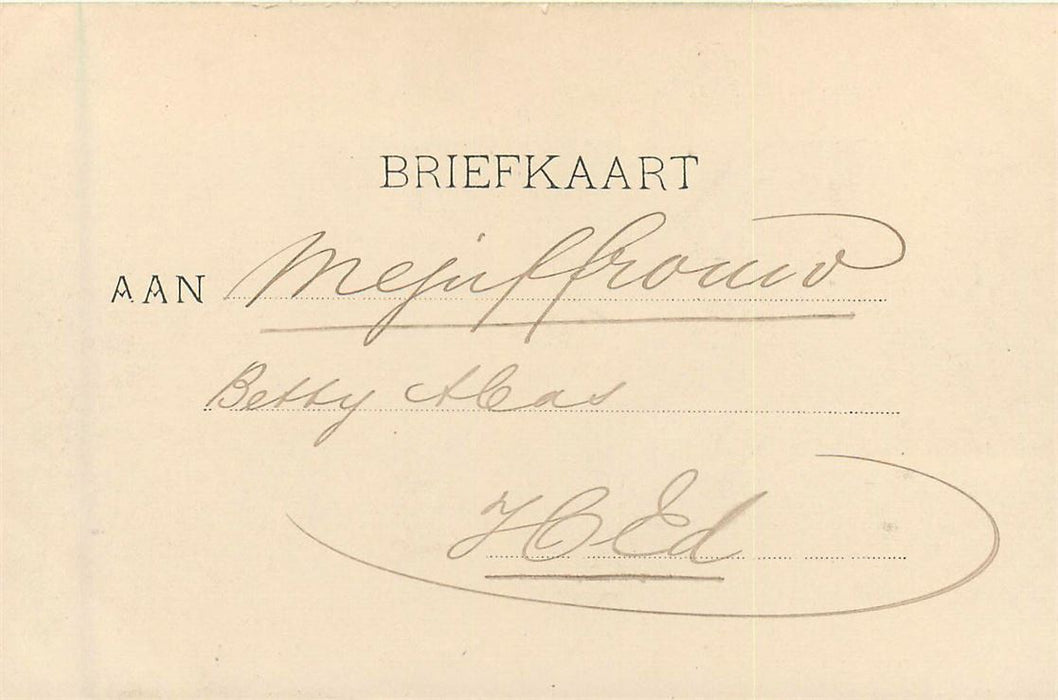 BRIEFKAART
AAN Mejuffrouw
Betty Haas
H Ed